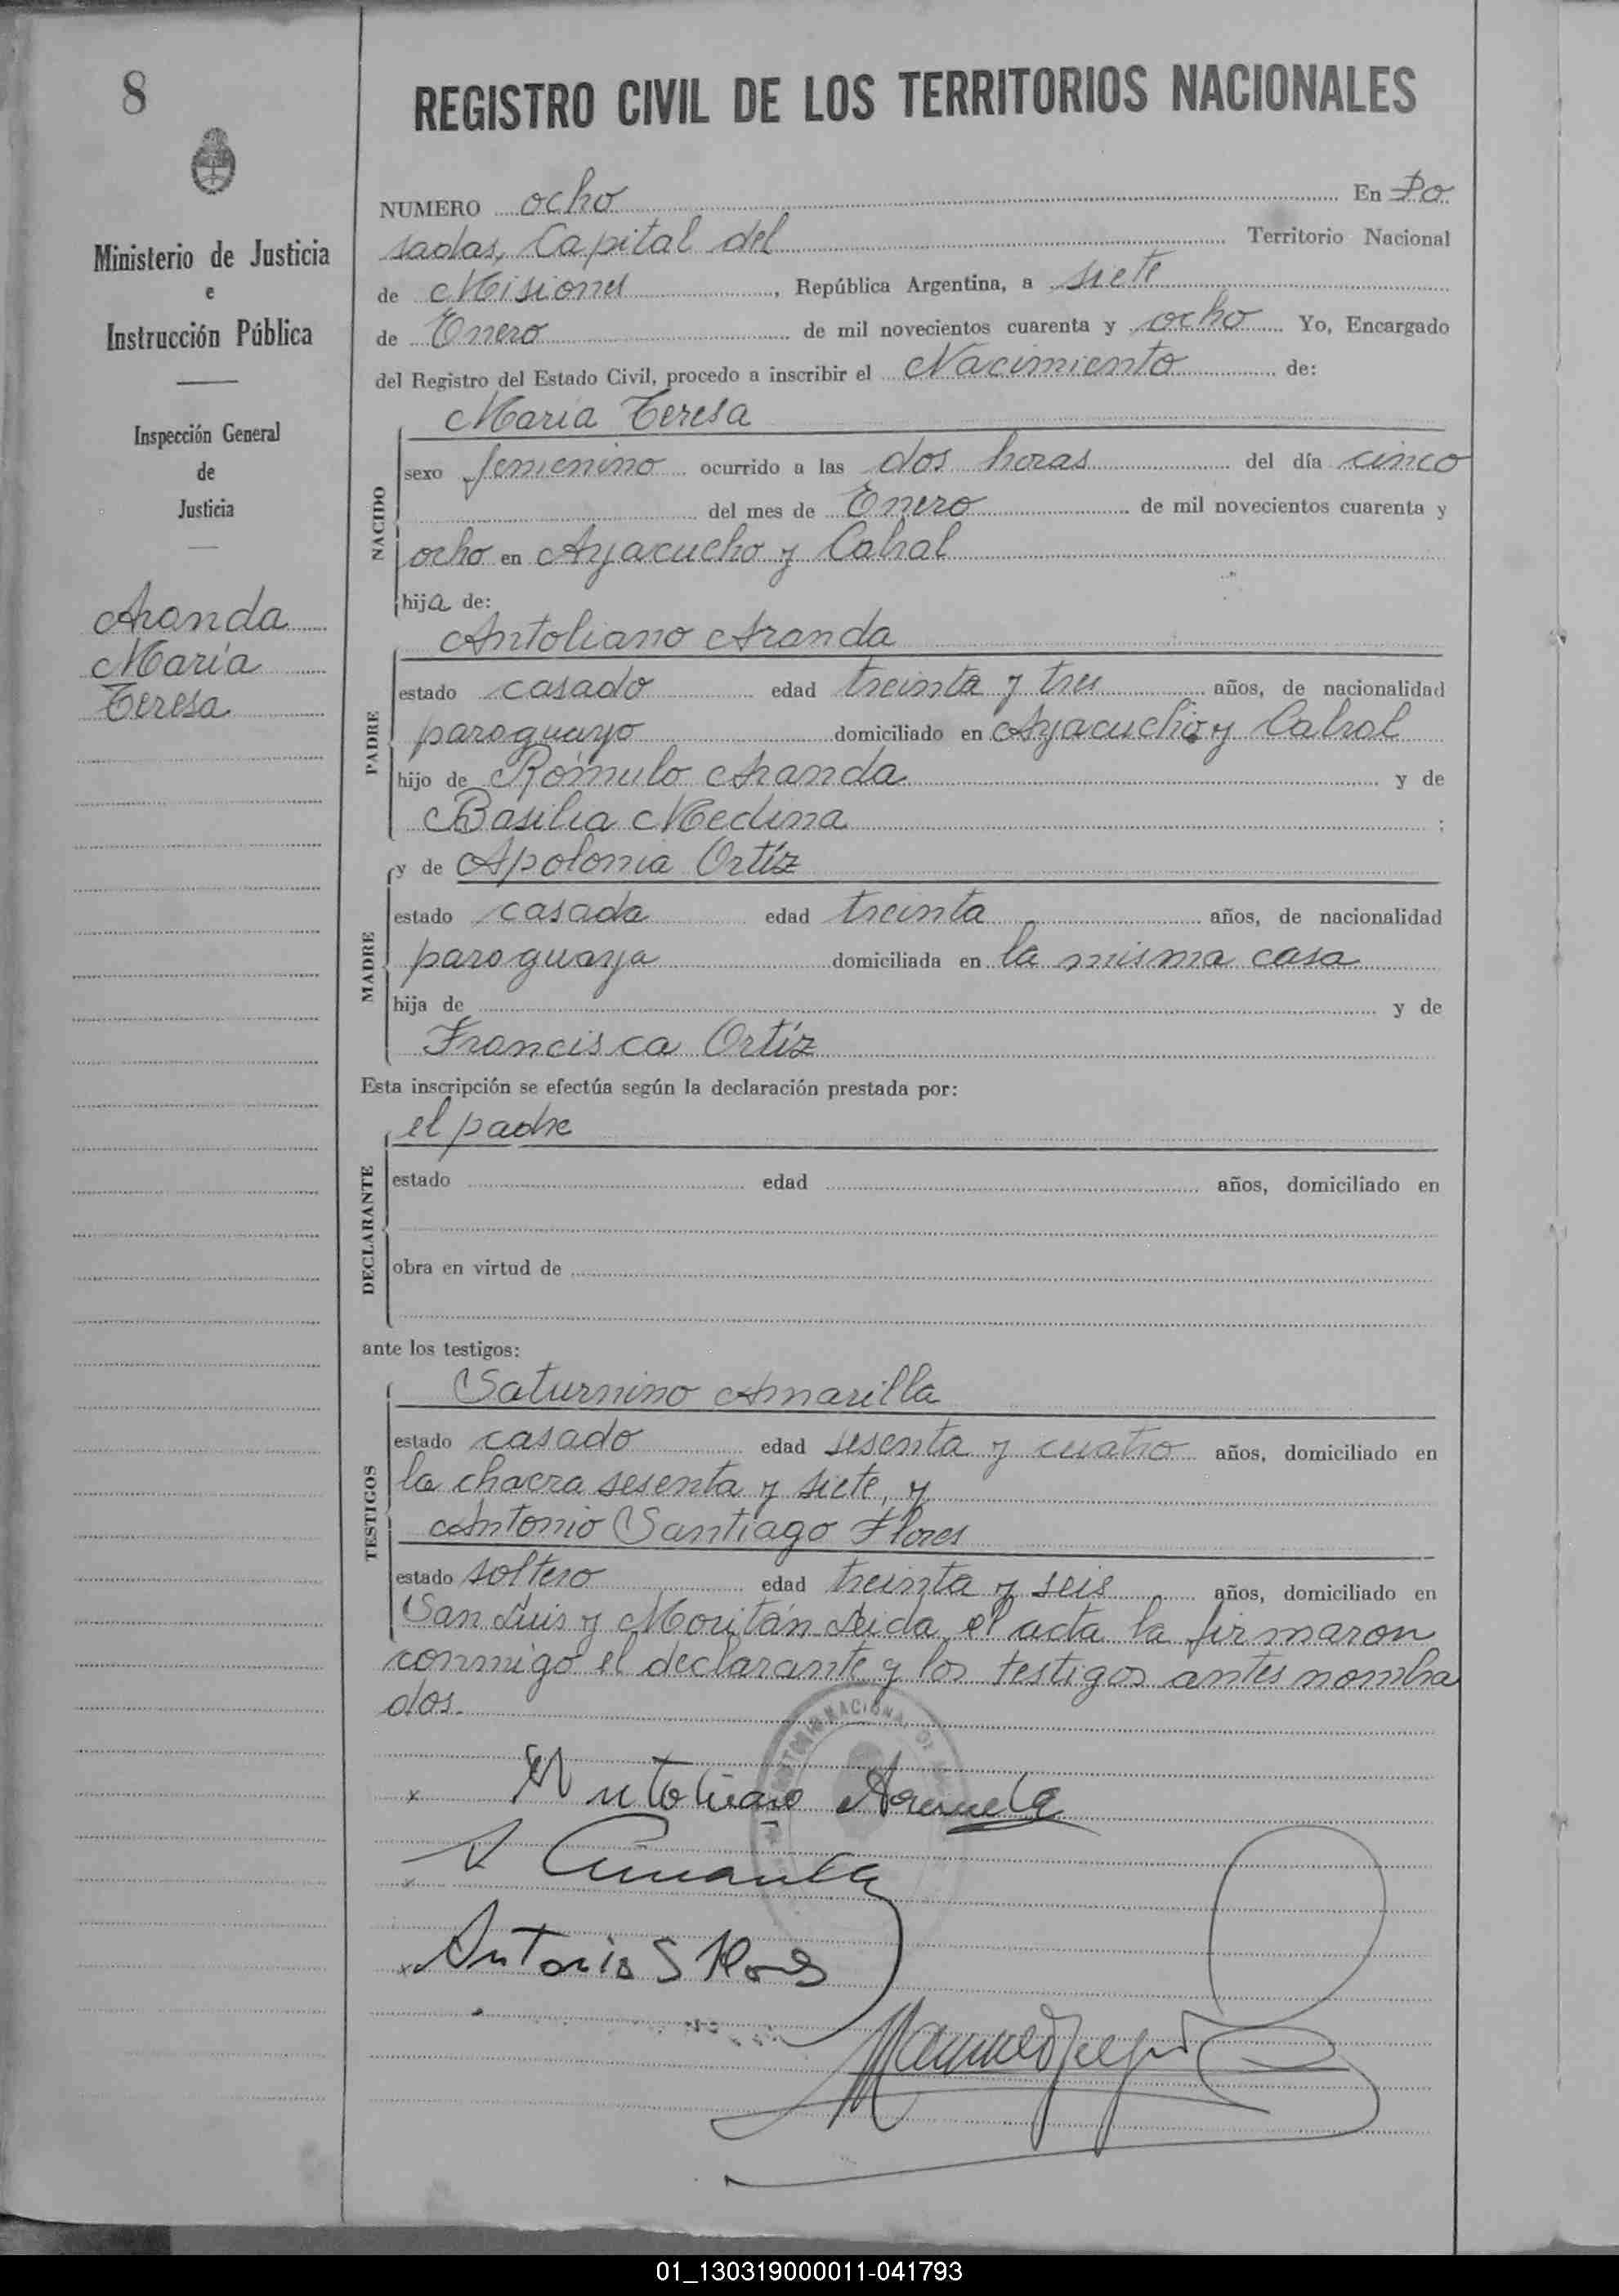 8
Ministerio de Justicia
e
Instrucción Pública
Inspección General
de
Justicia
Aranda
María
Teresa
REGISTRO CIVIL DE LOS TERRITORIOS NACIONALES
NUMERO ocho En Po
sadas, Capital del Territorio Nacional
de Misiones, República Argentina, a siete
de Enero de mil novecientos cuarenta y ocho Yo, Encargado
del Registro del Estado Civil, procedo a inscribir el Nacimiento de:
María Teresa
NACIDO
sexo femenino ocurrido a las dos horas del día cinco
del mes de Enero de mil novecientos cuarenta y
ocho en Ayacucho y Cabral
hija de:
Antoliano Aranda
PADRE
estado casado edad treinta y tres años, de nacionalidad
paraguayo domiciliado en Ayacucho y Cabral
hijo de Rómulo Aranda y de
Basilia Medina ;
y de Apolonia Ortíz
MADRE
estado casada edad treinta años, de nacionalidad
paraguaya domiciliada en la misma casa
hija de y de
Francisca Ortíz
Esta inscripción se efectúa según la declaración prestada por:
el padre
DECLARANTE
estado edad años, domiciliado en
obra en virtud de
ante los testigos:
Saturnino Amarilla
TESTIGOS
estado casado edad sesenta y cuatro años, domiciliado en
la chacra sesenta y siete, y
Antonio Santiago Flores
estado soltero edad treinta y seis años, domiciliado en
San Luis y Moritán Leida el acta la firmaron
conmigo el declarante y los testigos antes nombra
dos.
x Antoliano Aranda
x S Amarilla
x Antonio S Flores
01_130319000011-041793